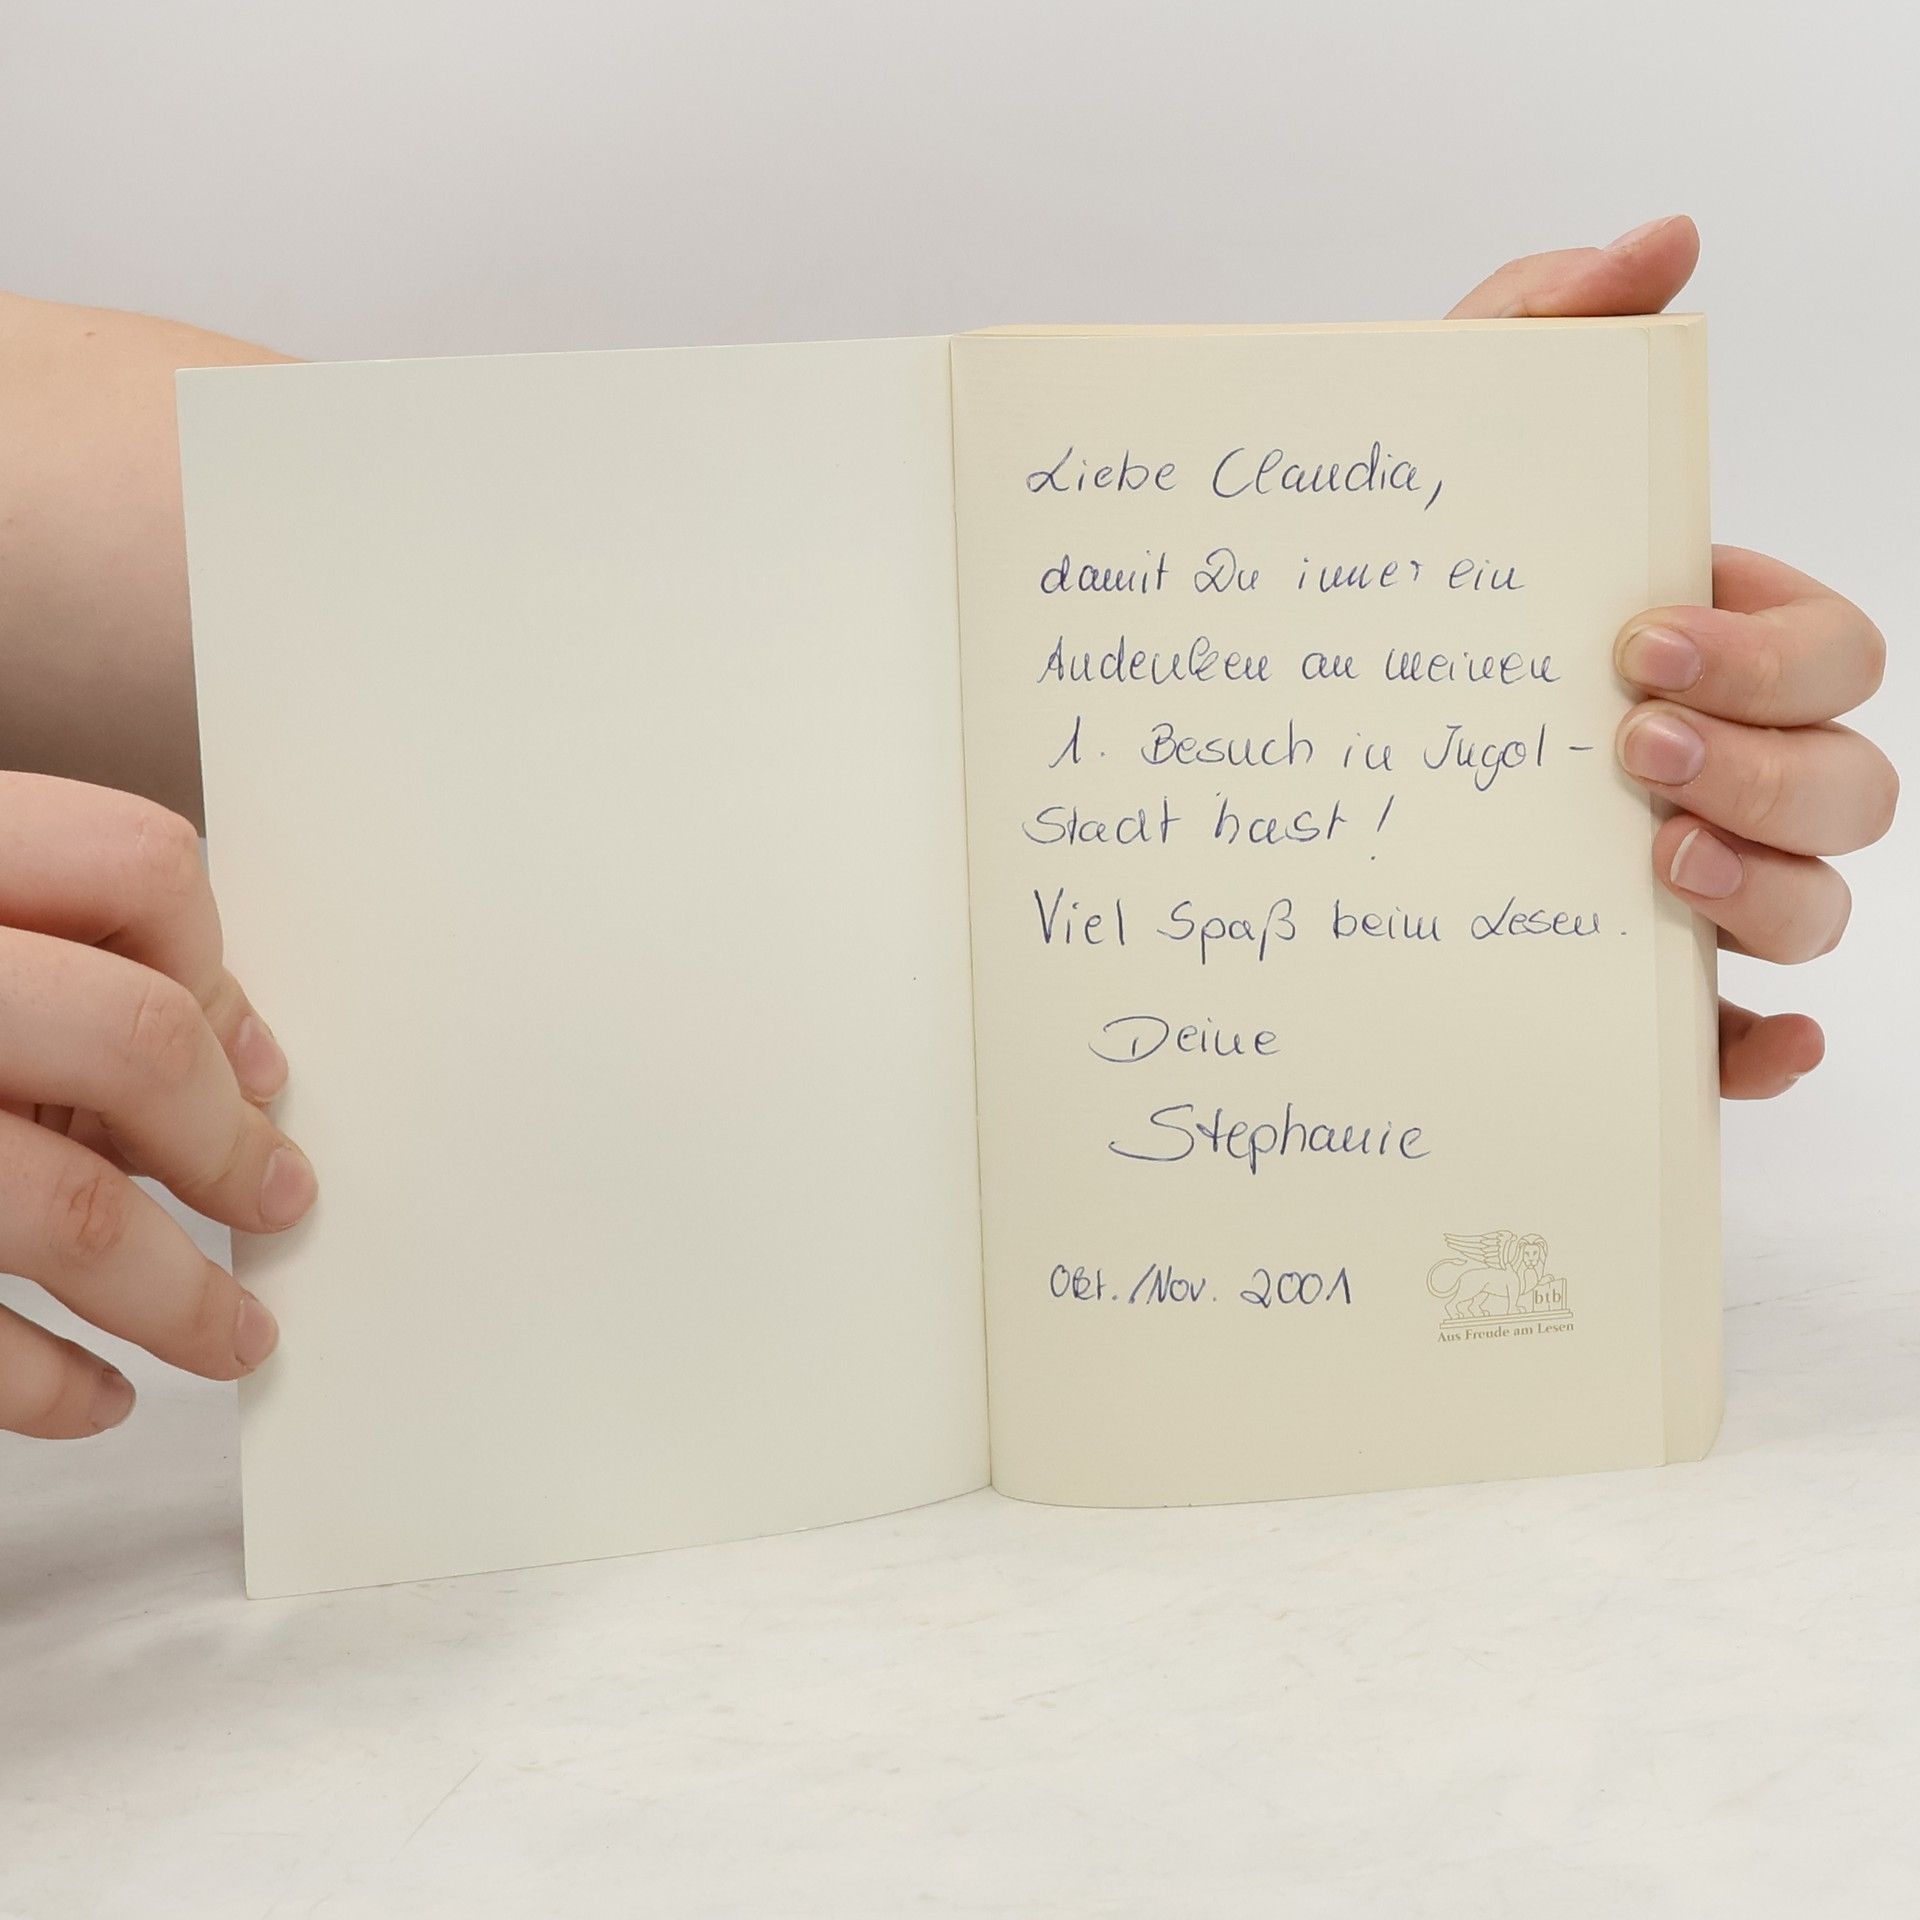 Liebe Claudia,
damit Du immer ein
Andenken an meinen
1. Besuch in Ingol-
stadt hast!
Viel Spaß beim Lesen.
Deine
Stephanie
Okt./Nov. 2001
btb
Aus Freude am Lesen